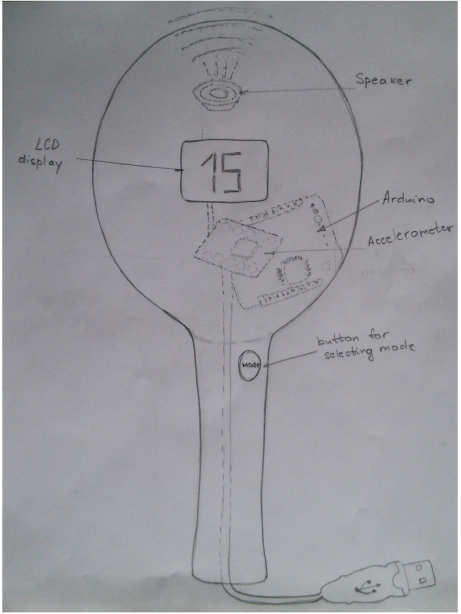 Speaker
LCD
display
15
Arduino
Accelerometer
button for
selecting mode
MODE